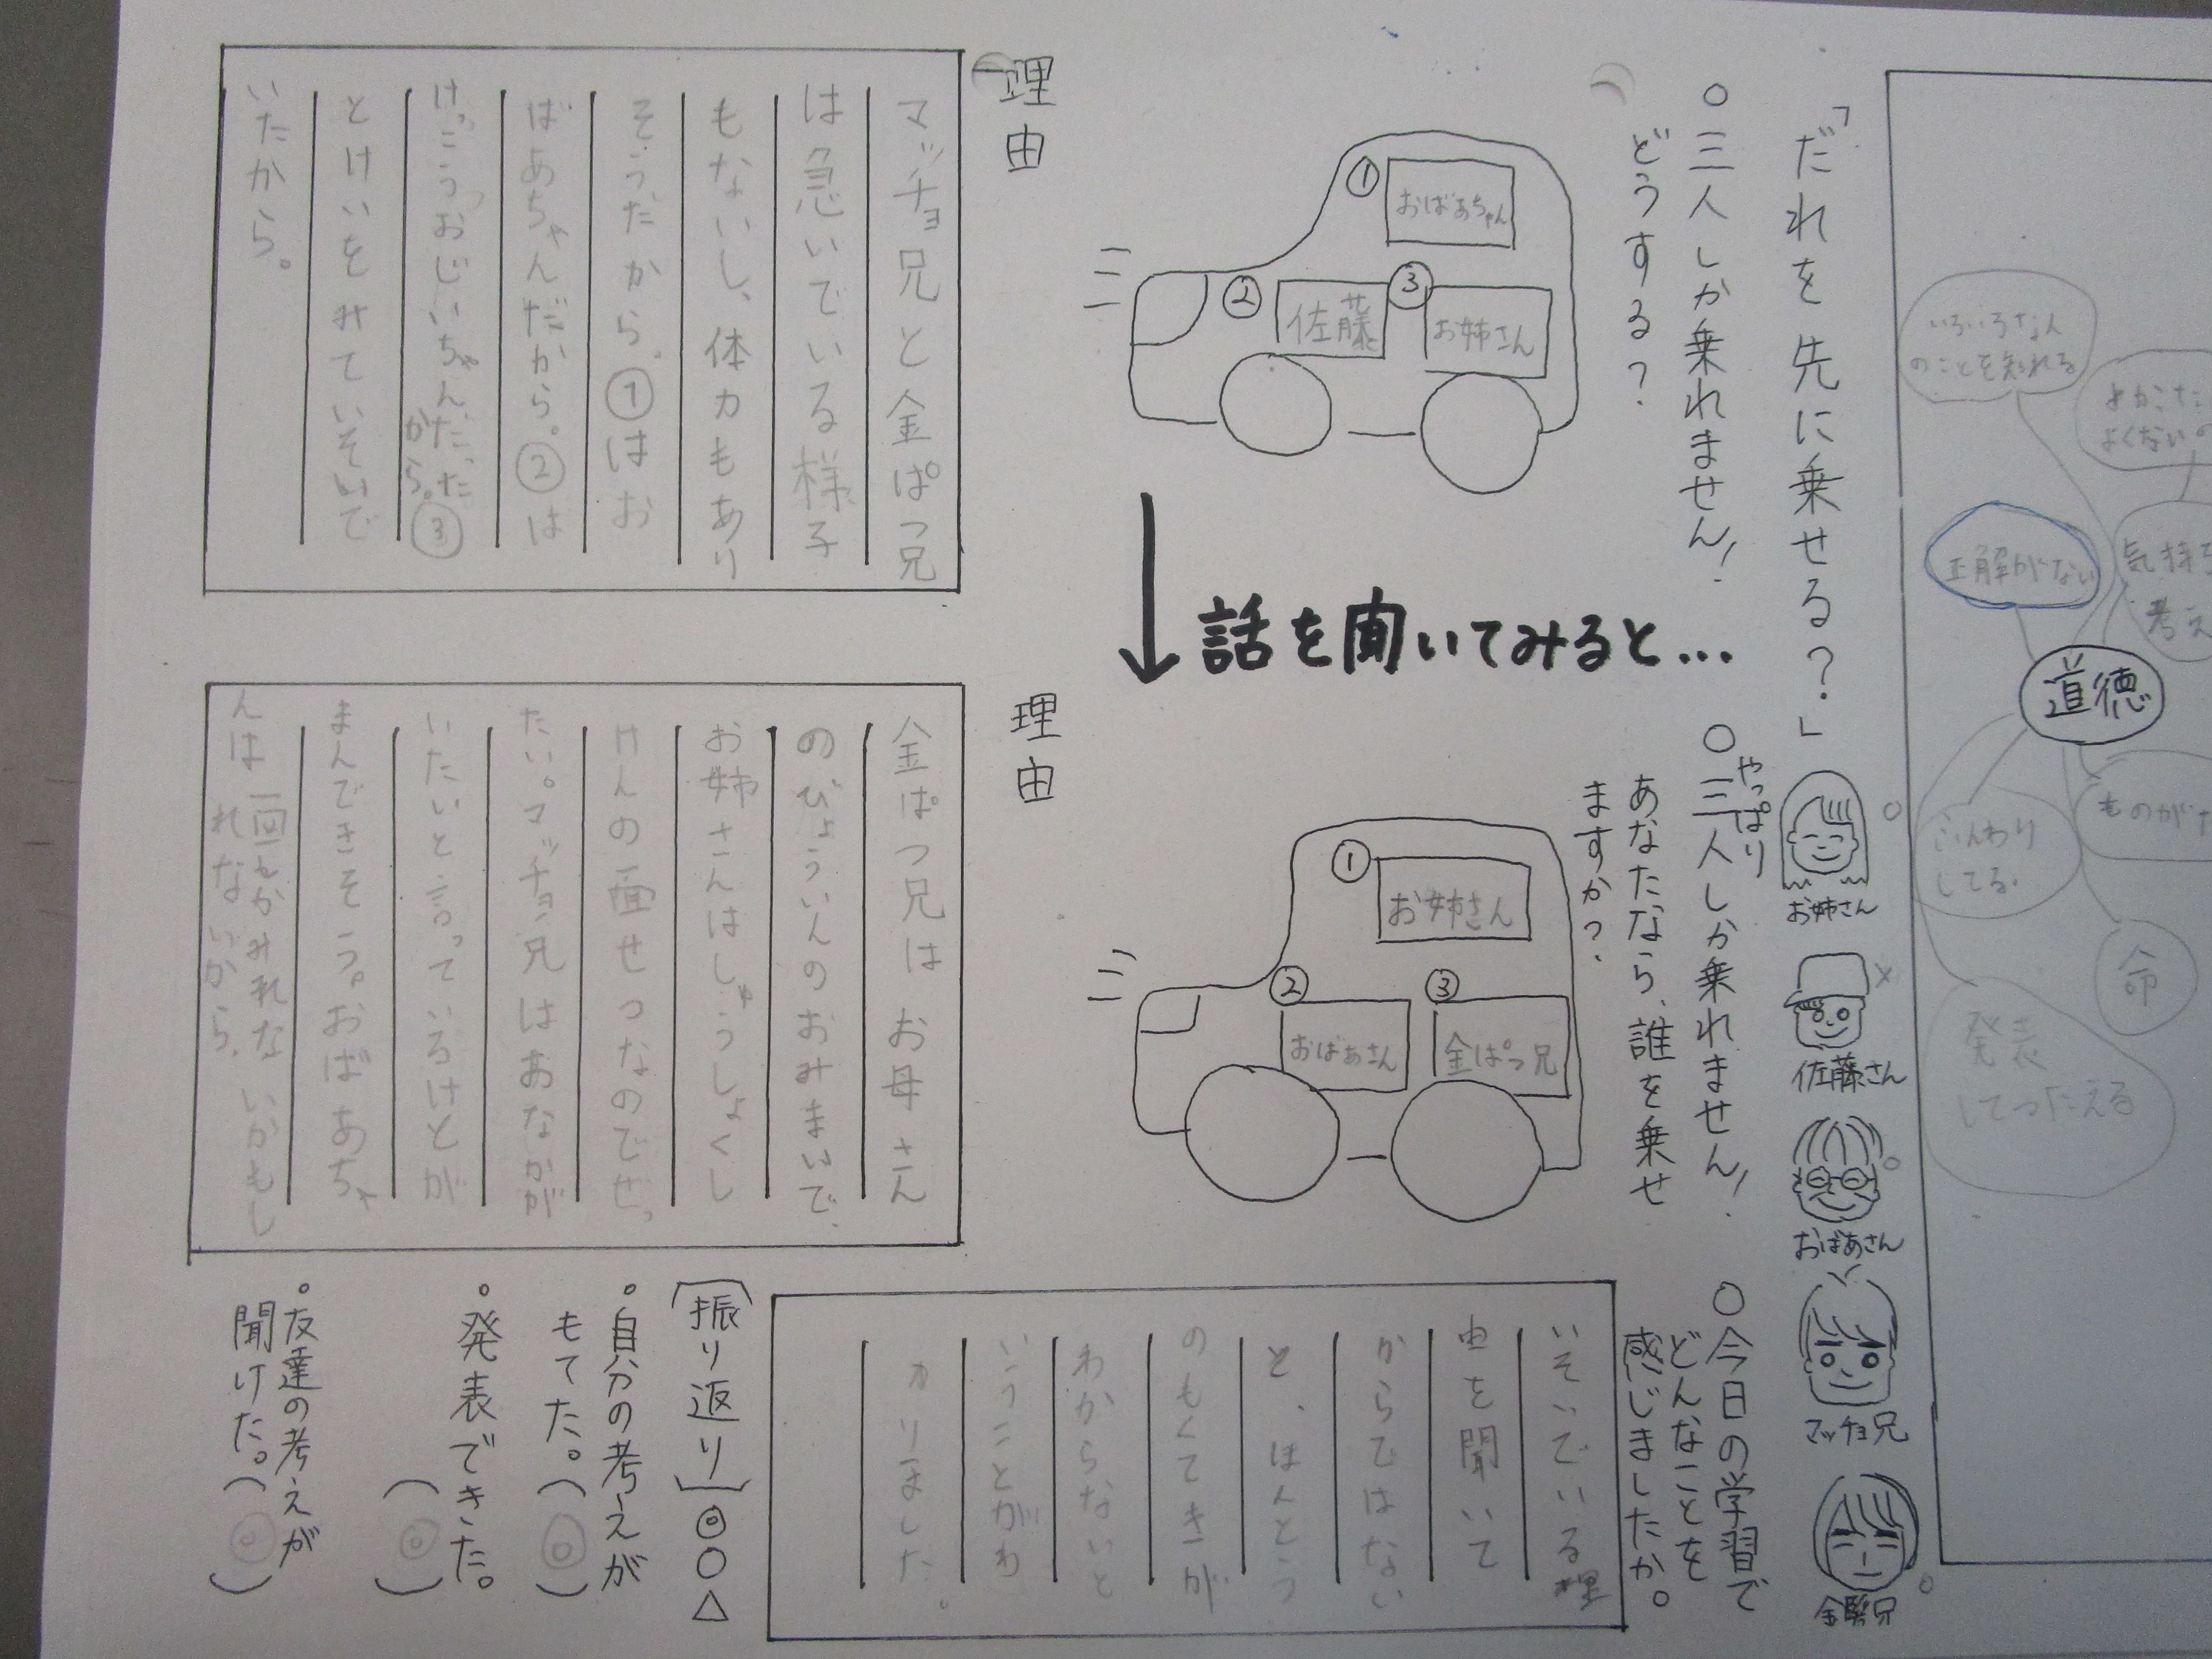 いろいろな人
のことを知れる
正解がない
気持ち
考え
道徳
ふんわり
してる。
命
発表
してつたえる
「だれを先に乗せる?」
お姉さん
佐藤さん
おばあさん
マッチョ兄
金髪兄
○三人しか乗れません!
どうする?
①
おばあちゃん
②
佐藤
③
お姉さん
理由
マッチョ兄と金ぱつ兄
は急いでいる様子
もないし、体力もあり
そうだから。①はお
ばあちゃんだから。②は
けっこうおじいちゃんだった
から。③
とけいをみていそいで
いたから。
話を聞いてみると…
やっぱり
○三人しか乗れません!
あなたなら、誰を乗せ
ますか?
①
お姉さん
②
おばあさん
③
金ぱつ兄
理由
金ぱつ兄はお母さん
のびょういんのおみまいで、
お姉さんはしゅうしょくし
けんの面せつなのでぜっ
たい。マッチョ兄はおなかが
いたいと言っているけどが
まんできそう。おばあちゃ
んは一回しかみれないかもし
れないから。
○今日の学習で
どんなことを
感じましたか。
いそいでいる理
由を聞いて
からではない
と、ほんとう
のもくてきが
わからないと
いうことがわ
かりました。
(振り返り)◎○△
。自分の考えが
もてた。(◎)
。発表できた。
(◎)
。友達の考えが
聞けた。(◎)